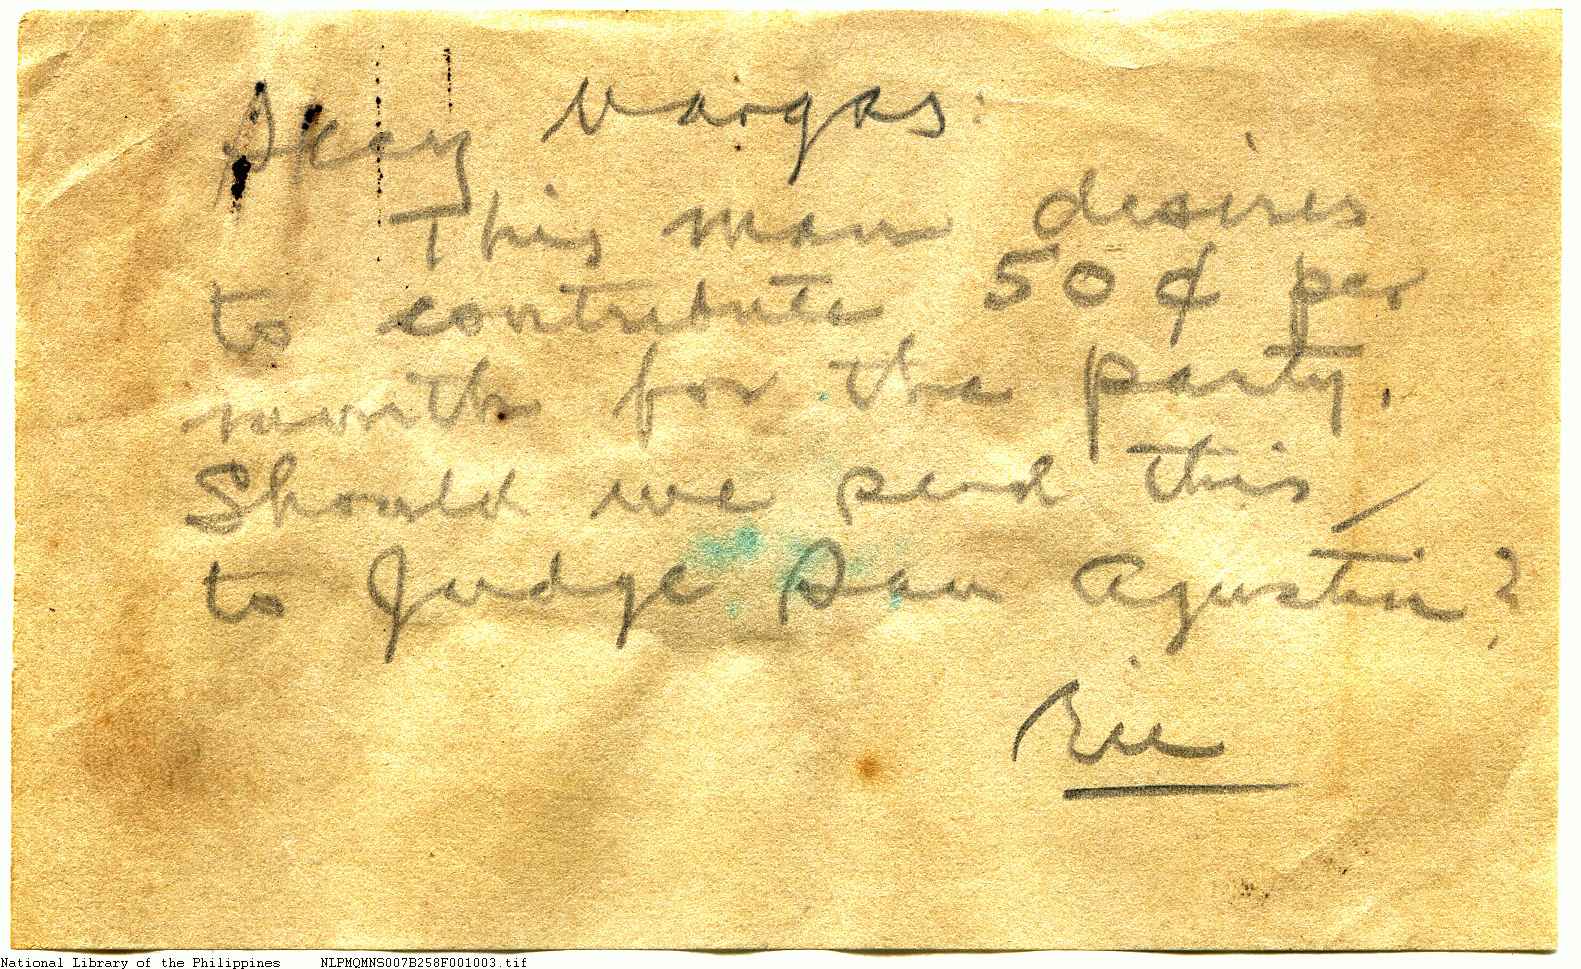 Skey Vargas:
This man desires
to contribute 50¢ per
month for the party.
Should we send this
to Judge San Agustin?
National Library of the Philippines NLPMQMNS007B258F001003.tif